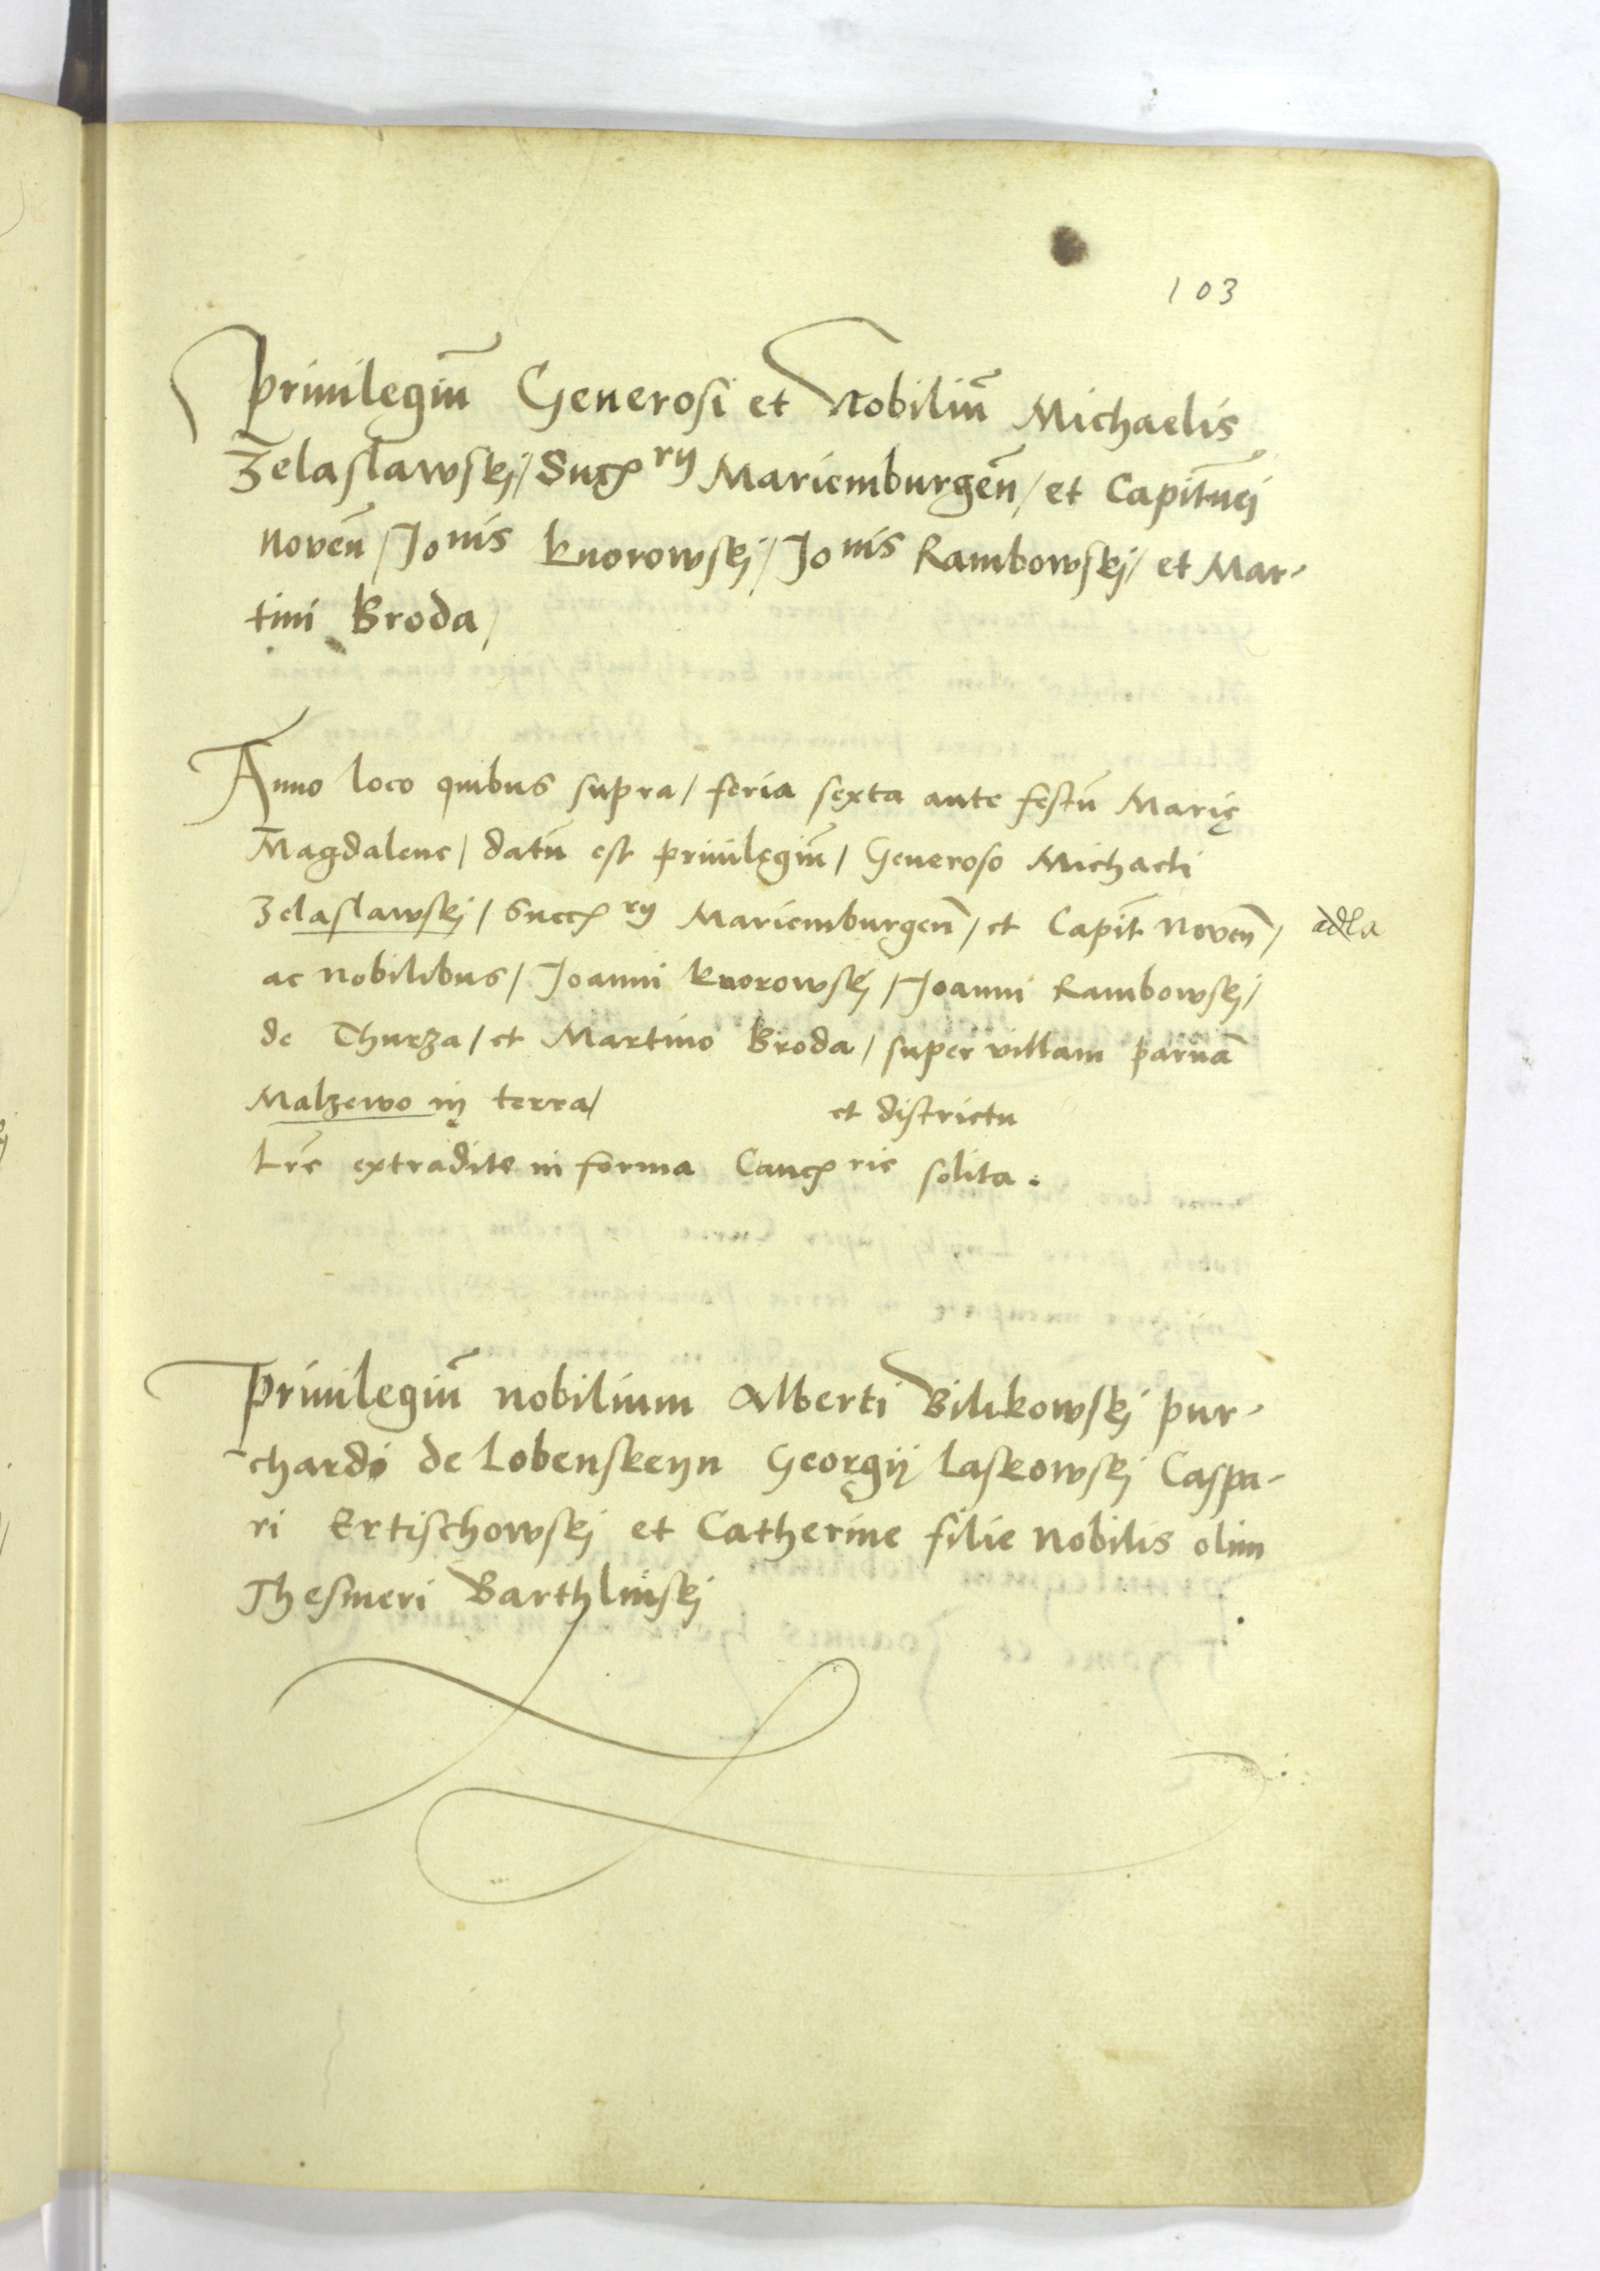 103
Priuilegiū Generosi et Nobiliū Michaelis
Zelaslawskj / Succ ry Mariemburgeñ / et Capitnej
Noveñ / Jo nis Knorowskj / Jo nis Rambowskj / et Mar-
tini Broda /
Anno loco quibus supra / feria sexta ante festū Marię
Magdalene / datū est priuilegiū / Generoso Michaeli
Zelaslawskj / Succ ry Mariemburgeñ / et Capit Noveñ /
ac Nobilibus / Joanni Knorowskj / Joanni Rambowskj /
de Thurza / et Martino Broda / super villam paruā
Malzewo in terra / et districtu
Lrē extradite in forma Canc rie solita .
Priuilegiū nobilium Alberti Bilikowskj pur-
chardi de Lobenskeyn Georgij Laskowskj Caspa-
ri Ertischowskj et Catherine filie Nobilis olim
Thesmeri Barthlinskj